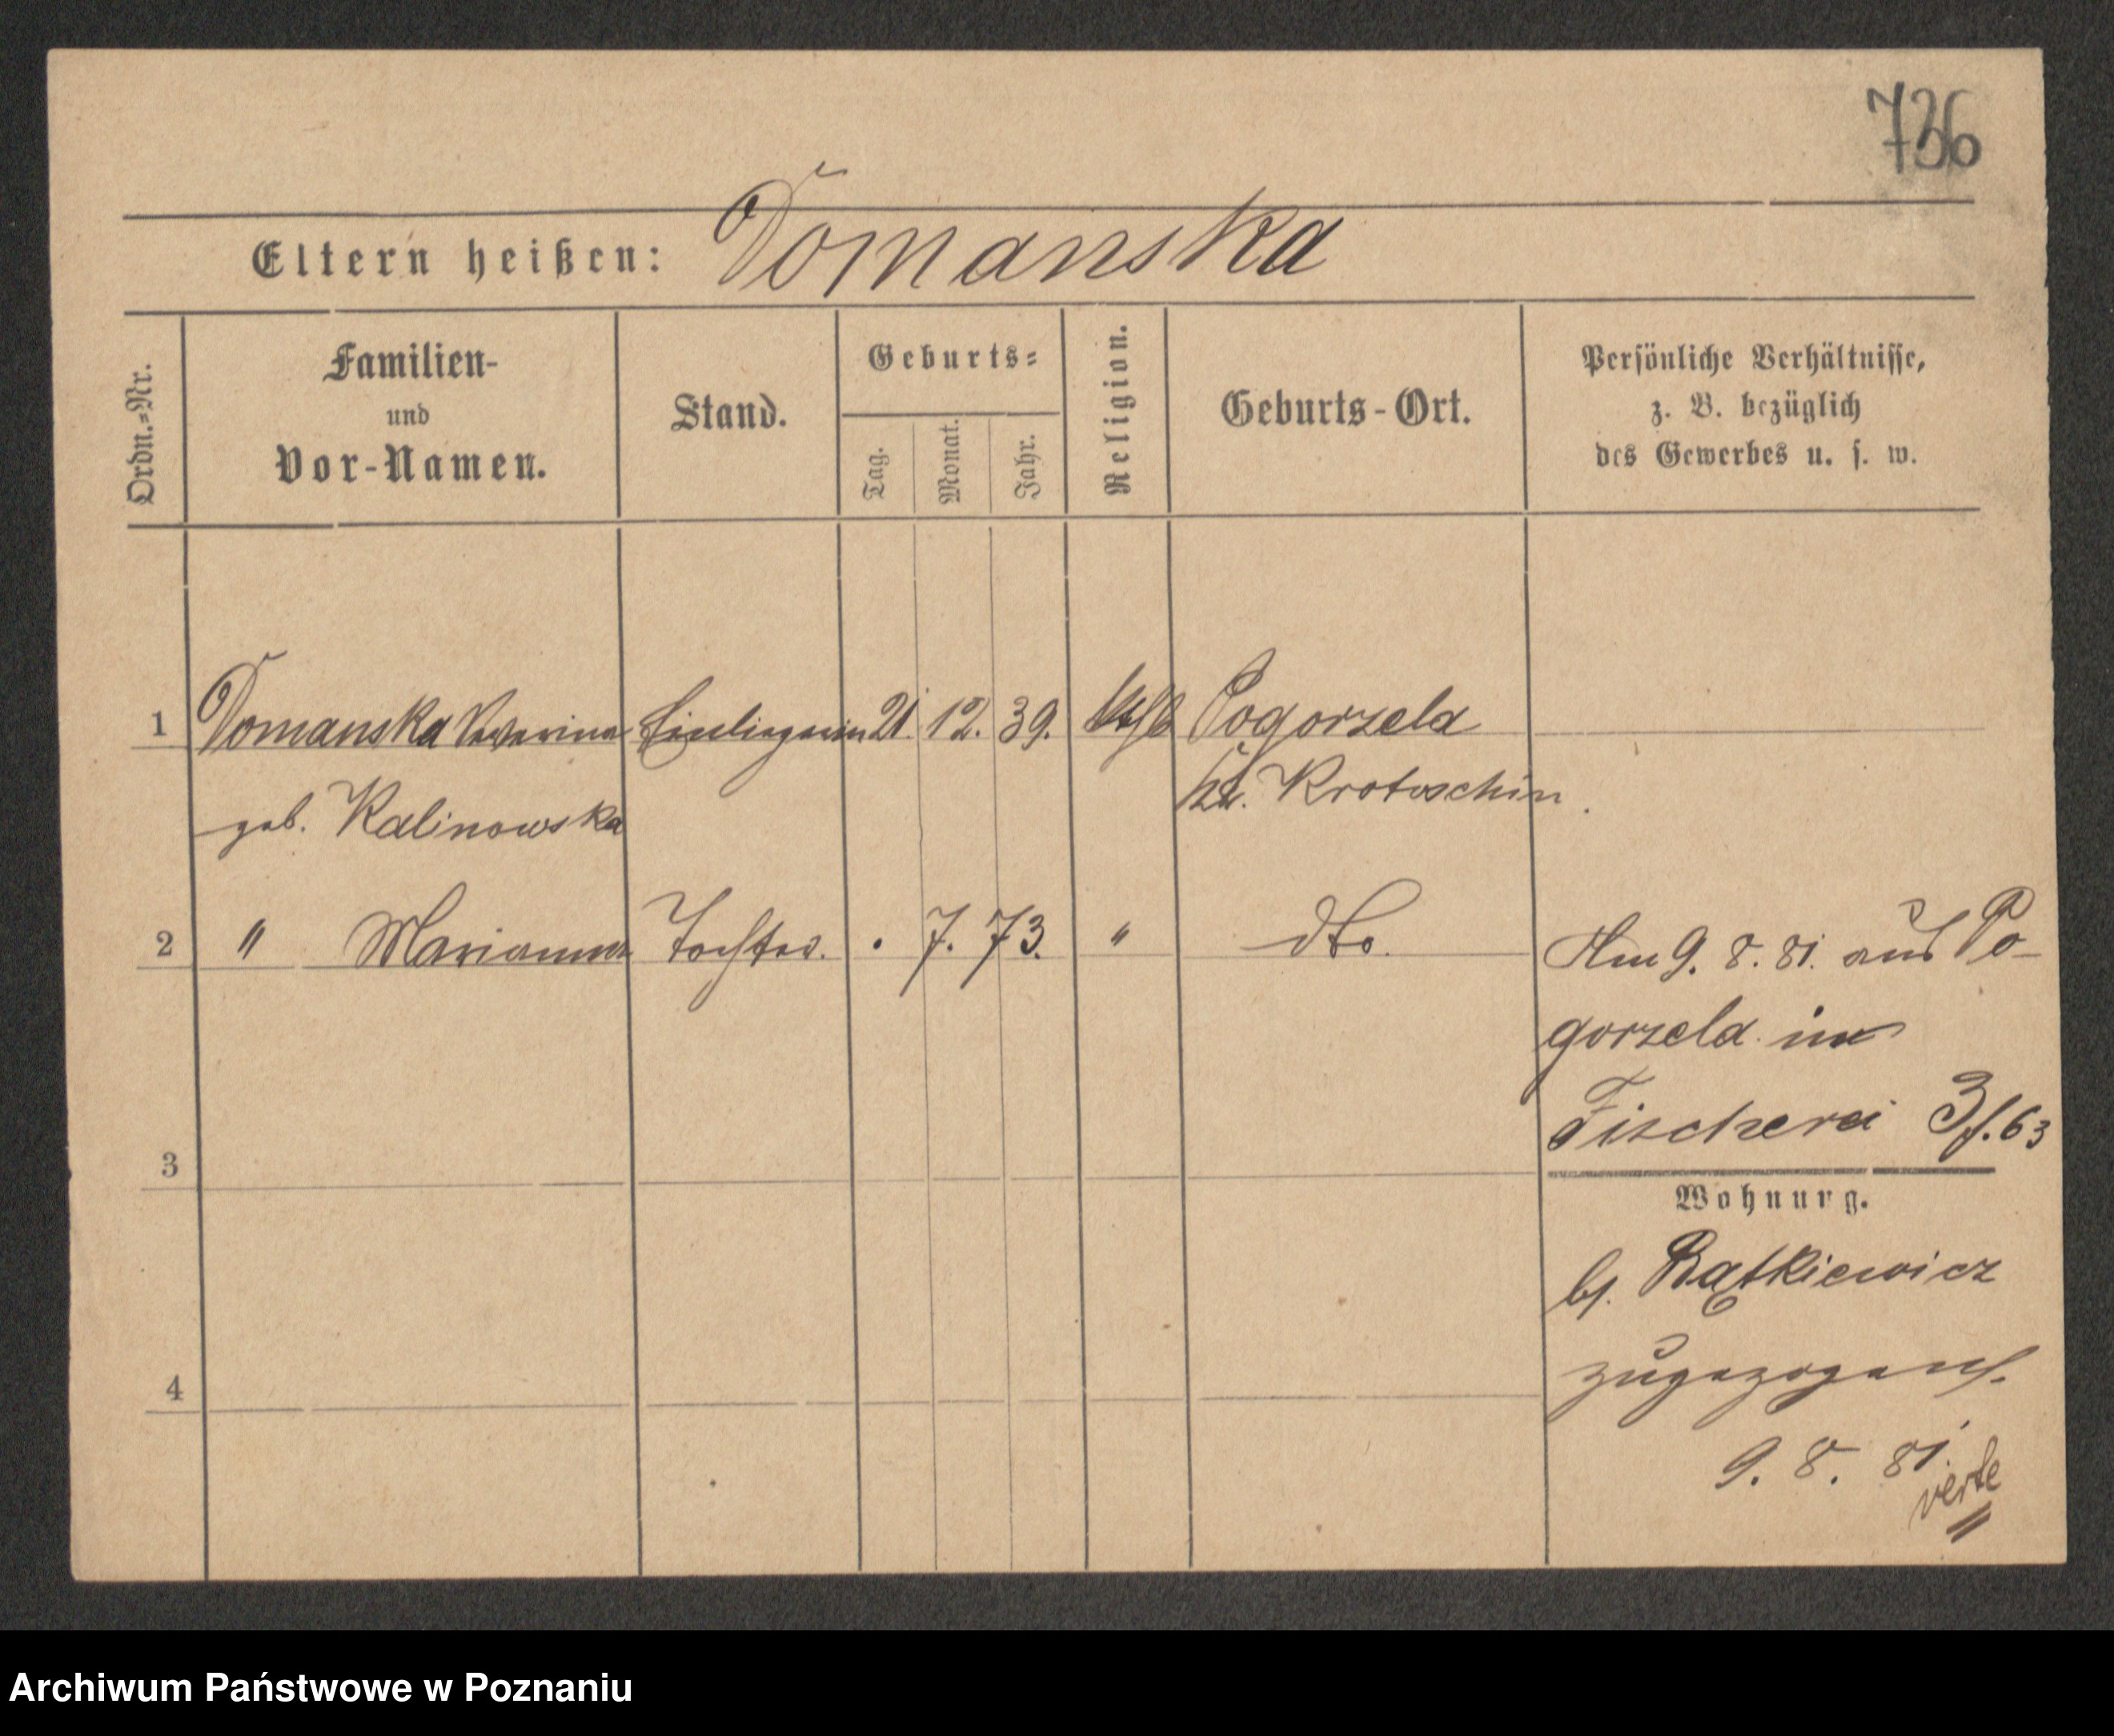 736
Eltern heißen: Domanska
Ordn.-Nr.
Familien-
und
Vor-Namen.
Stand.
Geburts-
Tag.
Monat.
Jahr.
Religion.
Geburts-Ort.
Persönliche Verhältnisse,
z. B. bezüglich
des Gewerbes u. s. w.
1 Domanska 21. 12. 39. kath Pogorzela
geb. Kalinowska Kr. Krotoschin.
2 " Marianna Tochter. . 7. 73. " dto. Am 9. 8. 81. aus Po-
gorzela in
Fischerei 3 f. 63
3
Wohnung.
bei Bątkiewicz
zugezogen
4
9. 8. 81.
verte
Archiwum Państwowe w Poznaniu